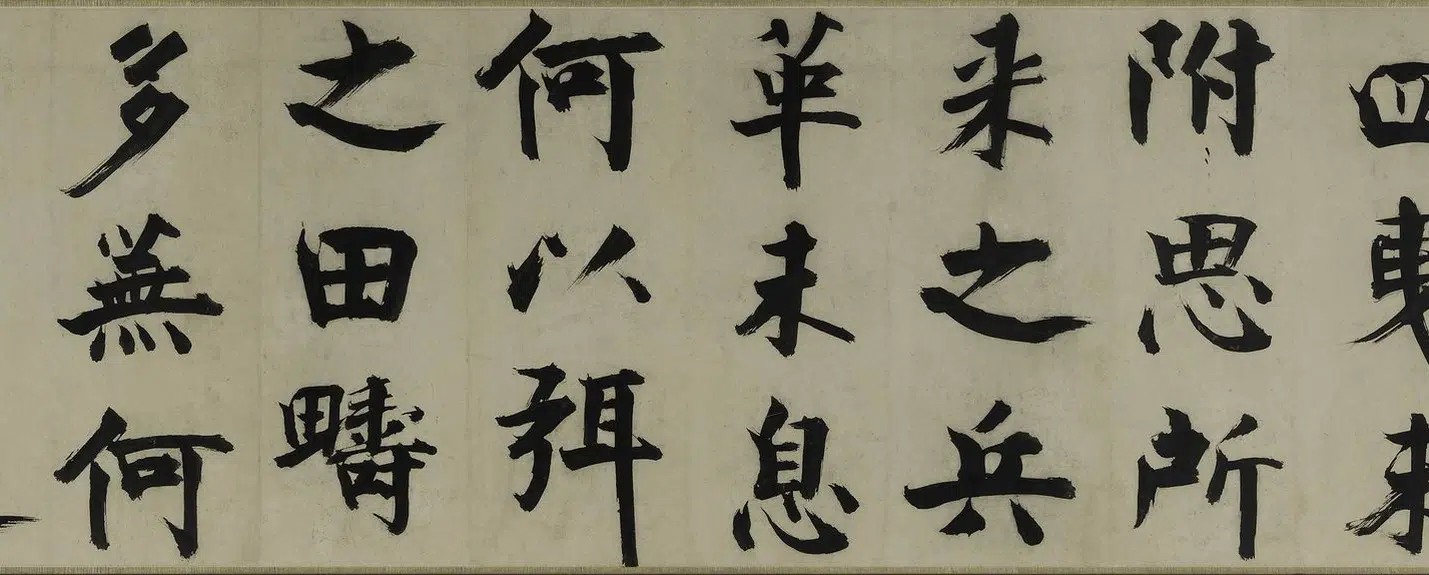 四夷未
附思所
来之兵
革未息
何以弭
之田疇
多蕪何